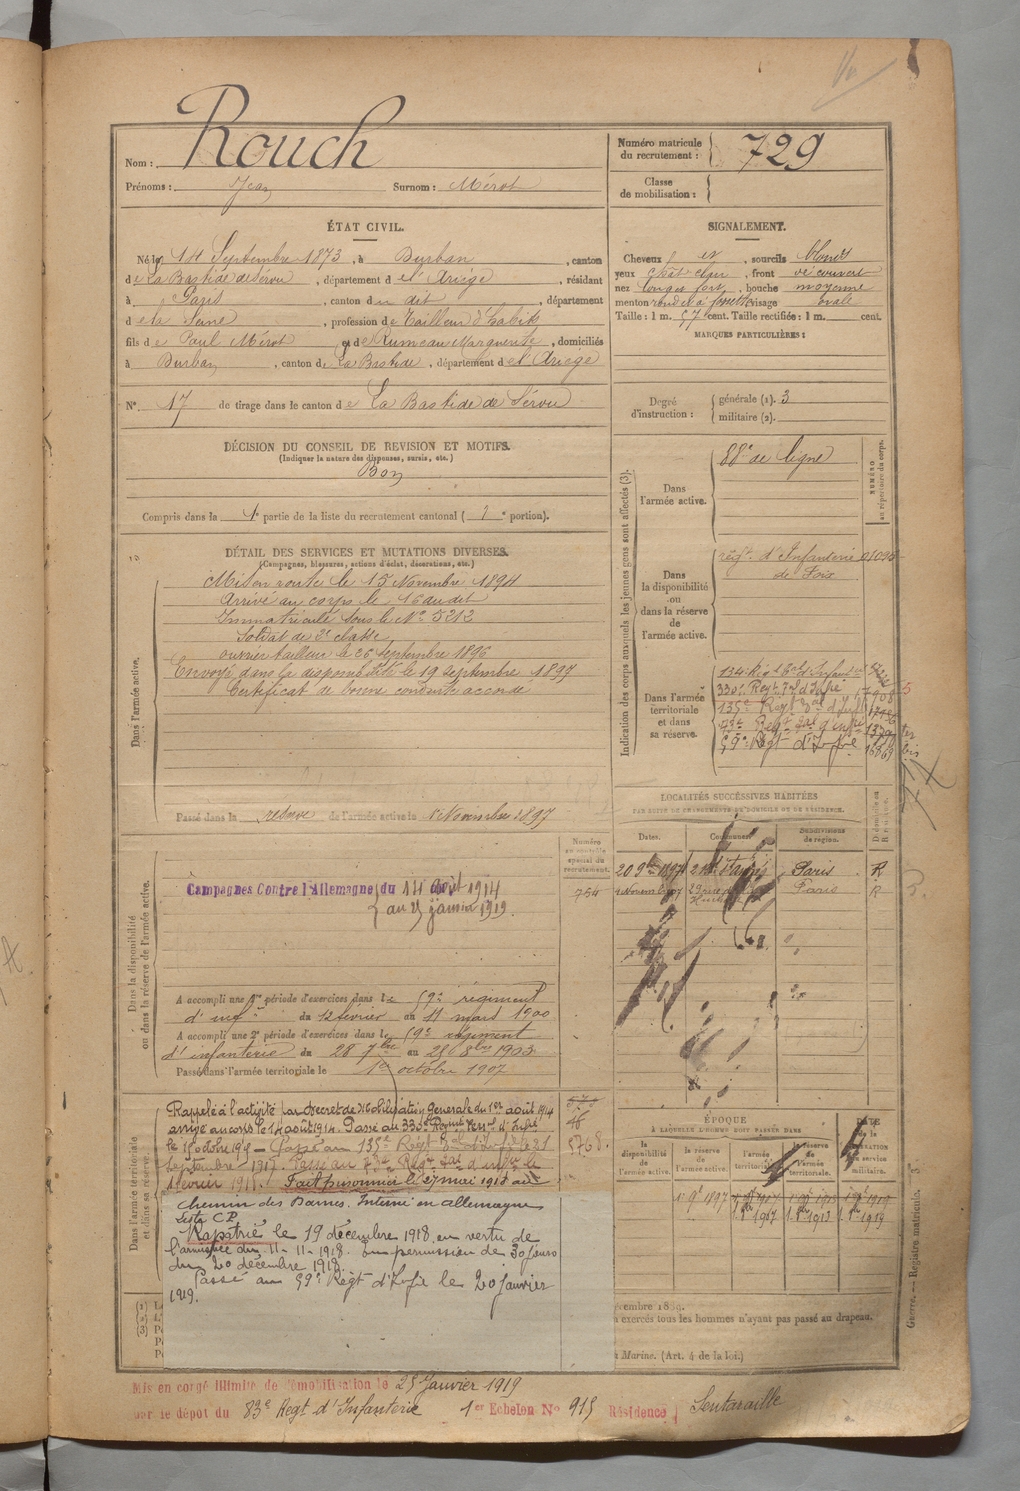 Nom : Rouch
Prénoms : Jean Surnom : Mérot
Numéro matricule du recrutement : 729
Classe de mobilisation :
ÉTAT CIVIL.
Né le 14 Septembre 1873, à Burban, canton
de La Bastide de Sérou, département de l'Ariège, résidant
à Paris, canton du dit, département
de la Seine, profession de Tailleur d'habits
fils de Paul Mérot et de Rumeau Marguerite, domiciliés
à Burban, canton de La Bastide, département de l'Ariège
N° 17 de tirage dans le canton de La Bastide de Sérou
SIGNALEMENT.
Cheveux et sourcils blonds
yeux chat. clair, front découvert
nez long et fort, bouche moyenne
menton rond et à fossette visage ovale
Taille : 1 m. 57 cent. Taille rectifiée : 1 m. cent.
MARQUES PARTICULIÈRES :
Degré d'instruction : générale (1). 3
militaire (2).
DÉCISION DU CONSEIL DE REVISION ET MOTIFS.
(Indiquer la nature des dispenses, sursis, etc.)
Bon
Compris dans la 1e partie de la liste du recrutement cantonal ( e portion).
DÉTAIL DES SERVICES ET MUTATIONS DIVERSES.
(Campagnes, blessures, actions d'éclat, décorations, etc.)
Dans l'armée active.
Mis en route le 15 Novembre 1894
Arrivé au corps le 16 du dit
Immatriculé sous le N° 5212
Soldat de 2e classe
ouvrier tailleur le 26 septembre 1896
Envoyé dans la disponibilité le 19 septembre 1897
Certificat de bonne conduite accordé
Passé dans la réserve de l'armée active le 1 Novembre 1897
Indication des corps auxquels les jeunes gens sont affectés (3).
NUMÉRO au répertoire du corps.
Dans l'armée active. 88e de ligne
Dans la disponibilité ou dans la réserve de l'armée active. régt d'Infanterie de Foix 01095
Dans l'armée territoriale et dans sa réserve.
134e Régt Tal d'Infanterie
330e Regt Tal d'Infie
135e Régt Tal d'Infie
73e Regt Tal d'infie
59e Régt d'Infie
LOCALITÉS SUCCESSIVES HABITÉES
PAR SUITE DE CHANGEMENTS DE DOMICILE OU DE RÉSIDENCE.
Dates. Communes. Subdivisions de région.
20 9bre 1897 Paris R
Paris R
Dans la disponibilité ou dans la réserve de l'armée active.
Numéro au contrôle spécial du recrutement.
754
Campagnes Contre l'Allemagne du 14 août 1914
au 25 janvier 1919.
A accompli une 1re période d'exercices dans le 59e régiment
d'infie du 12 février au 11 mars 1900
A accompli une 2e période d'exercices dans le 59e régiment
d'infanterie du 28 7bre au 25 8bre 1903
Passé dans l'armée territoriale le 1er octobre 1907
Dans l'armée territoriale et dans sa réserve.
Rappelé à l'activité par Décret de Mobilisation Générale du 1er août 1914
arrivé au corps le 14 août 1914. Passé au 330e Régiment Territ d'Infie
le 15 octobre 1915 – Passé au 135e Régt Tal d'Infie le 21
Septembre 1917. Passé au 73e Régt Tal d'infie le
1 février 1918. Fait prisonnier le 27 mai 1918 au
Chemin des Dames. Interné en allemagne
Liste C.P.
Rapatrié le 19 décembre 1918 en vertu de
l'armistice du 11-11-1918. En permission de 30 jours
du 20 décembre 1918.
Passé au 59e Régt d'Infie le 20 janvier
1919.
5768
ÉPOQUE
À LAQUELLE L'HOMME DOIT PASSER DANS
la disponibilité de l'armée active. la réserve de l'armée active. l'armée territoriale. la réserve de l'armée territoriale. DATE de la LIBÉRATION du service militaire.
1r 9bre 1897
décembre 1889.
exercés tous les hommes n'ayant pas passé au drapeau.
Marine. (Art. 4 de la loi.)
Guerre. — Registre matricule.
Mis en congé illimité de démobilisation le 25 Janvier 1919
par le dépot du 83e Regt d'Infanterie 1er Echelon N° 915 Résidence Sentaraille